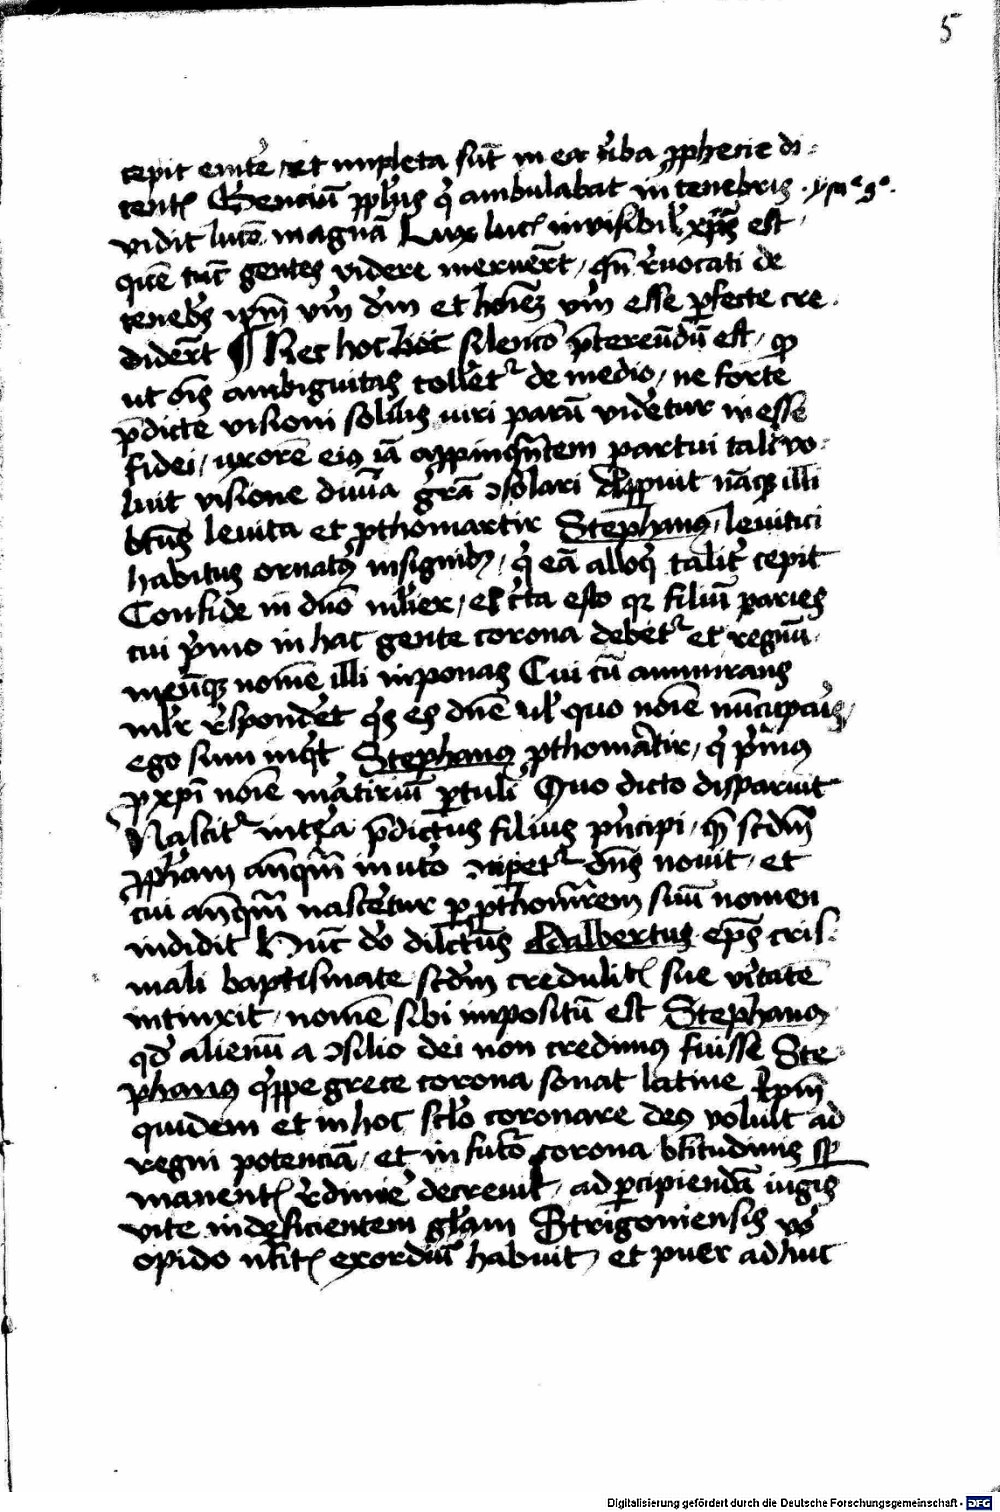 5
cepit emte᷑ et impleta su̅t in ea v᷑ba ꝓphecie di
cent{is} Genciu̅ ppl̅s q᷑ ambulabat in tenebris · ysa⁰ 9⁰.
vidit luce̅ magna̅ Lux luc{is} invisibil{is} xp̅s est
que̅ tu̅c gentes videre meruer̅t / qn̅ r᷑vocati de
teneb᷑s ip̅m vm̅ dm̅ et hoi̅e̅ vm̅ esse ꝑfecte cre
dider̅t ¶ Nec hoc hoc silenc̅o p̅tereu̅du̅ est / qꝫ
ut oi̅s ambiguitas toller̅et᷑ de medio / ne forte
p̅dicte visioni solius viri paru̅ vider̅etur inesse
fidei / uxore̅ eiꝰ ia̅ appinqn̅tem partui tali vo
luit visione divi̅a gr̅a ꝯsolari Appuit na̅qꝫ illi
bt̅us levita et pthomartir Stephanꝰ / levitici
habitus ornatꝰ insignibꝫ / q᷑ ea̅ alloq᷑ talit᷑ cepit
Confide in dn̅o mlier / et c᷑ta esto qꝫ filiu̅ paries
cui p᷑mo in hac gente corona debet᷑ et regnu̅
meu̅qꝫ nome̅ illi inponas Cui cu̅ ammirans
ml᷑r r᷑sponder̅et q᷑s es dn̅e vl᷑ quo noi̅e nu̅cupar᷑is /
ego sum inq᷑t Stephanꝰ pthomar̅tir / q᷑ p᷑mꝰ
p xp̅i noi̅e ma̅rtiriu̅ ꝑtuli Quo dicto disparuit
Nascit᷑ int᷑ea p̅dictus filius p᷑ncipi / que̅ scd̅m
ꝓph̅am an̅qm̅ in ut᷑o ꝯcipet᷑ dn̅s novit / et
cui an̅qm̅ nascer̅etur ꝑ pthomr̅em suu̅ nomen
indidit Hu̅c do̅ dilc̅tus Adalbertus ep̅s cris
mali baptismate scd̅m credulit{atis} sue v᷑itate̅
intinxit / nome̅ sibi impositu̅ est Stephanꝰ
qd̅ alienu̅ a ꝯsilio dei non credimꝰ fuisse Ste
phanꝰ q᷑ppe grece corona sonat latine Ip̅m
quidem et in hoc scl̅o coronare deꝰ voluit ad
regni potencia̅ / et in futo̅ corona bt̅itudinis sp̅
manent{is} r᷑dimi᷑e decrevit / ad ꝑcipienda̅ iugis
vite indeficientem gl̅iam Strigoniensis vo̅
opido nt̅it{atis} exordiu̅ habuit / et puer adhuc
Digitalisierung gefördert durch die Deutsche Forschungsgemeinschaft - DFG